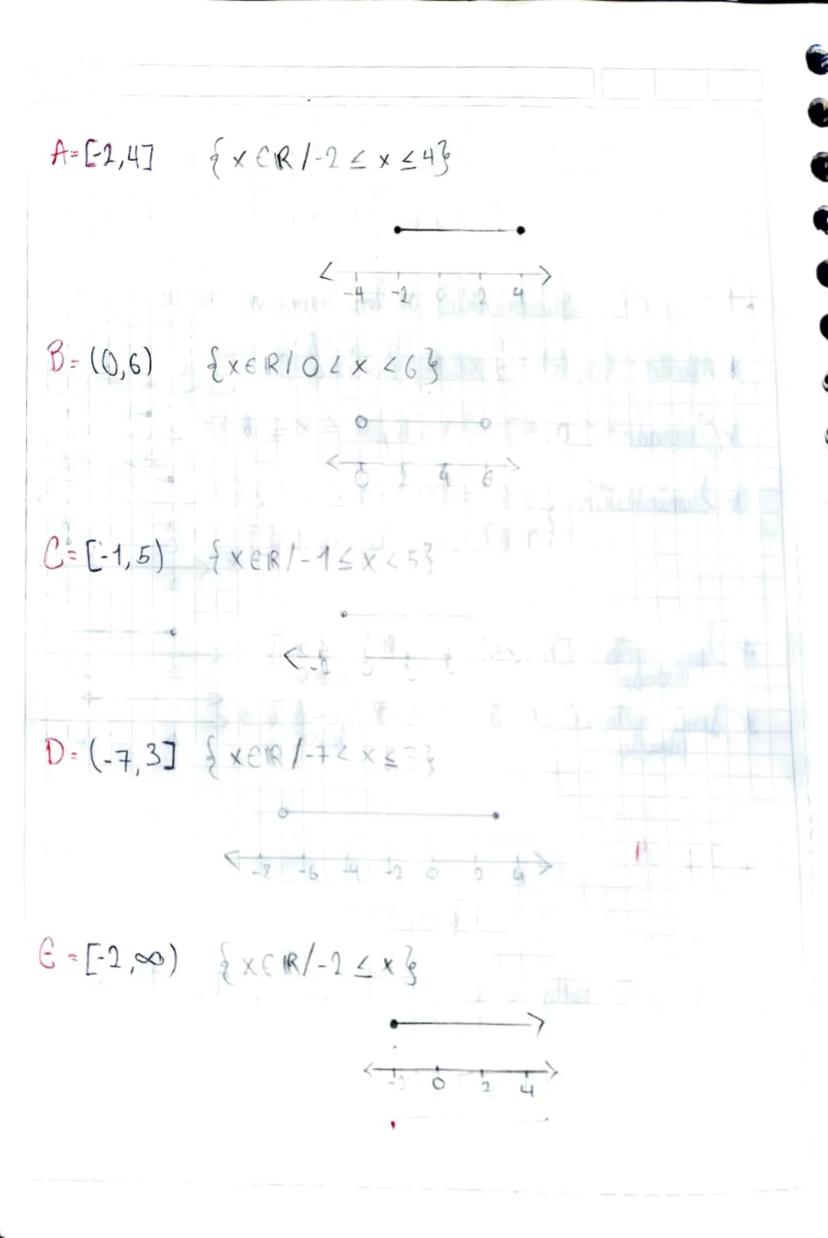 A=[-2,4] {x∈R/-2≤x≤4}
-4 -2 0 2 4
B=(0,6) {x∈R/0<x<6}
0 2 4 6
C=[-1,5) {x∈R/-1≤x<5}
-2
D=(-7,3] {x∈R/-7<x≤3}
-8 -6 -4 -2 0 2 4
E=[-2,∞) {x∈R/-2≤x}
-2 0 2 4